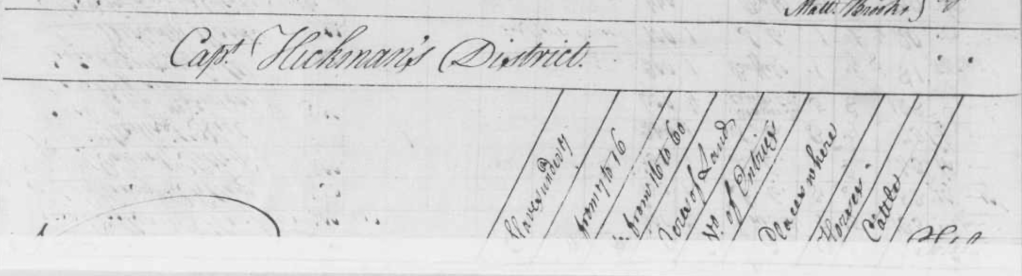 Matt. Brooks
Capt. Hickman's District.
Slaves under 7
from 7 to 16
from 16 to 60
Acres of Land
No. of Entries
Places where
Horses
Cattle